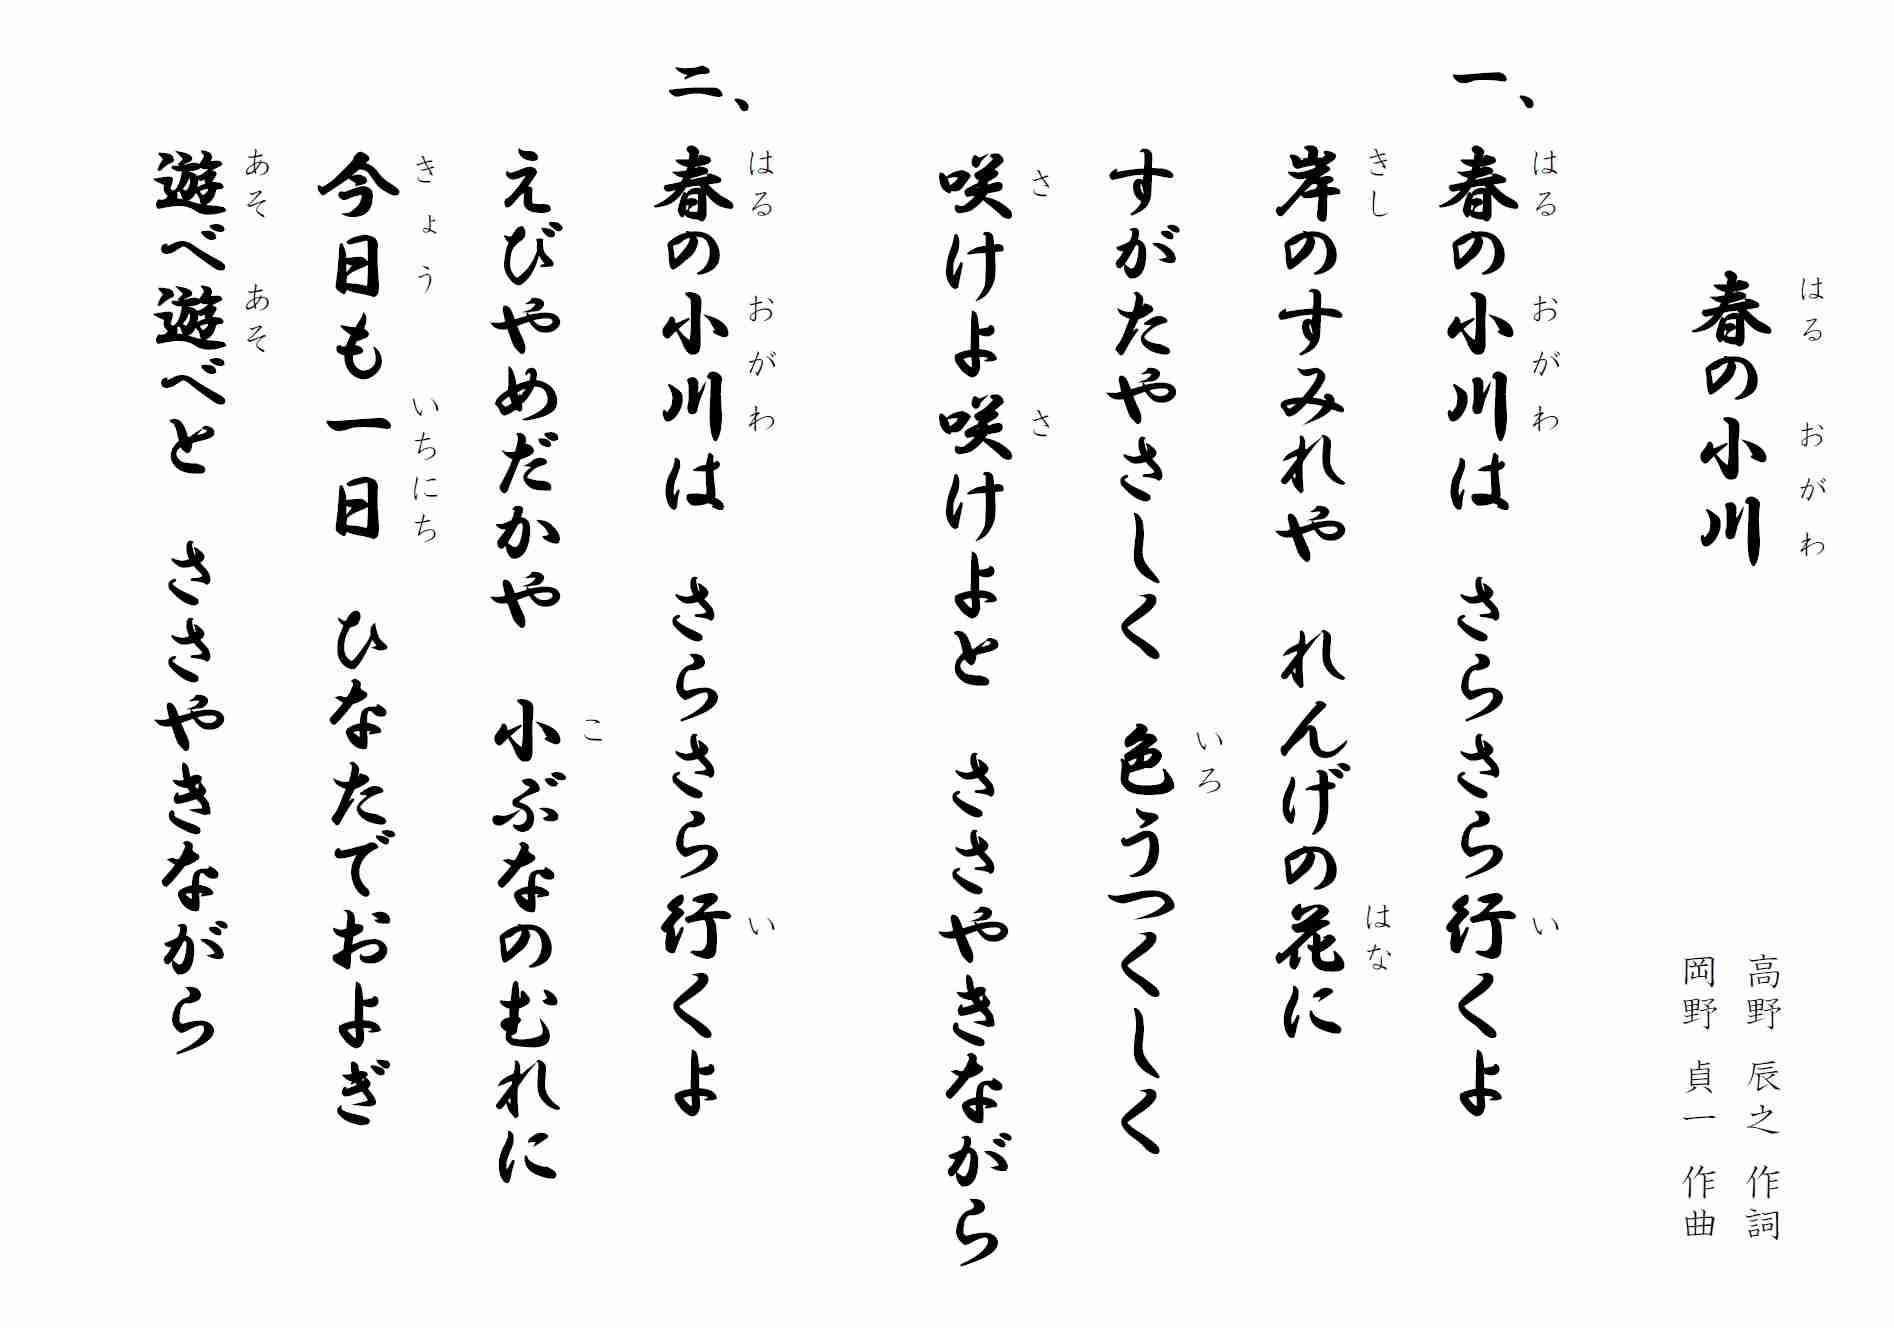 春の小川
高野 辰之 作詞
岡野 貞一 作曲
一、
春の小川は　さらさら行くよ
岸のすみれや　れんげの花に
すがたやさしく　色うつくしく
咲けよ咲けよと　ささやきながら
二、
春の小川は　さらさら行くよ
えびやめだかや　小ぶなのむれに
今日も一日　ひなたでおよぎ
遊べ遊べと　ささやきながら
はる　おがわ
はる　おがわ　い
きし　はな
いろ
さ　さ
はる　おがわ　い
こ
きょう　いちにち
あそ　あそ